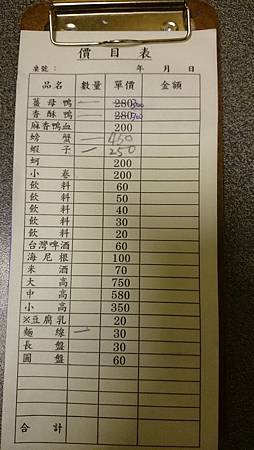 價目表
座號： 年 月 日
品名 數量 單價 金額
薑母鴨 一 280 300
香酥鴨 一 280
麻香鴨血 200
螃蟹 一 450
蝦子 一 250
蚵 200
小卷 200
飲料 60
飲料 50
飲料 40
飲料 30
飲料 20
台灣啤酒 60
海尼根 100
米酒 70
大高 750
中高 580
小高 350
※豆腐乳 20
麵線 一 30
長盤 30
圓盤 60
合計